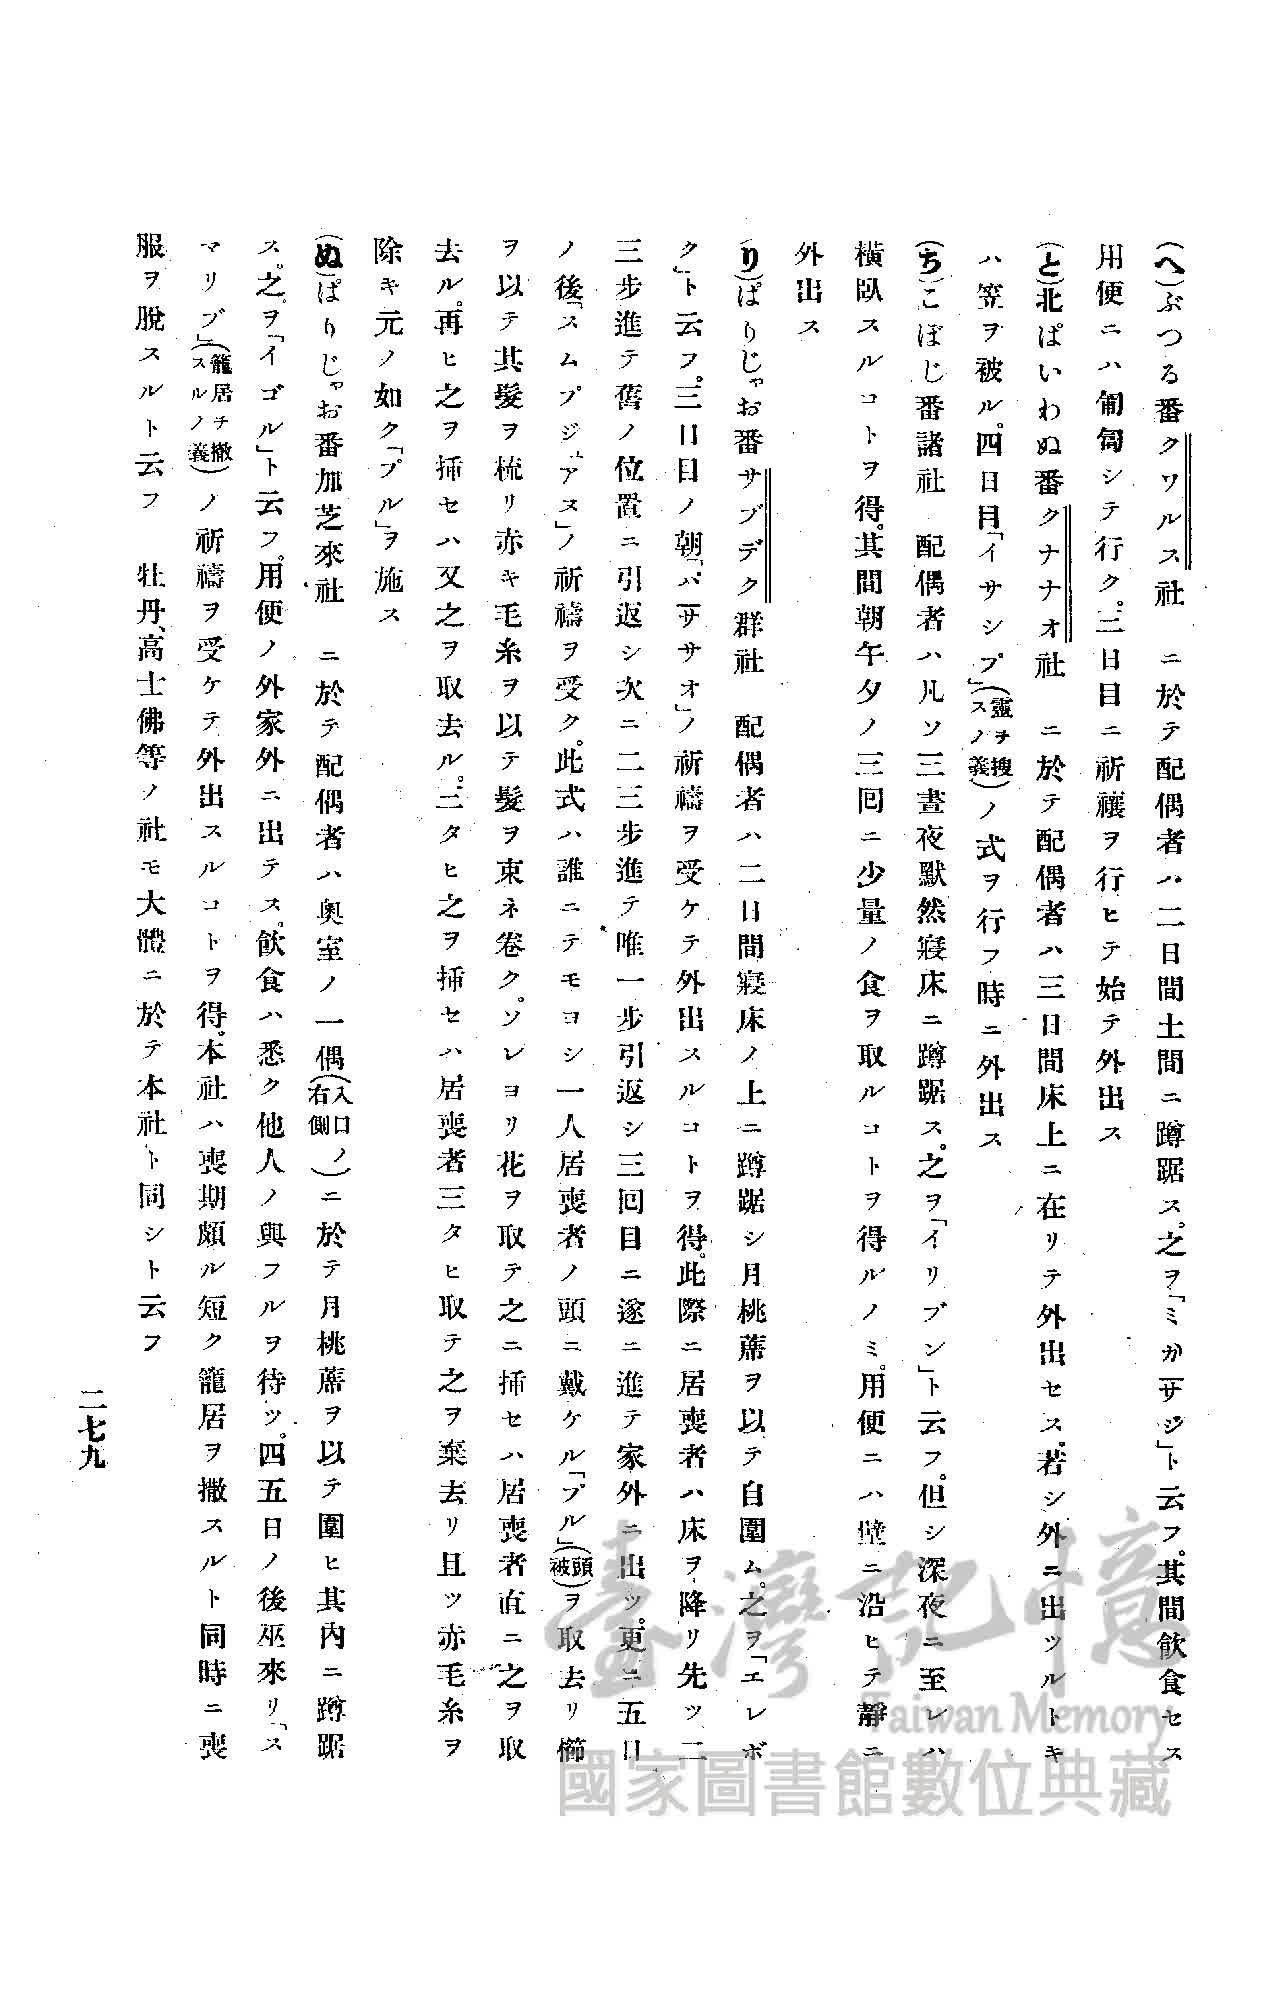 (へ)ぶつる番クワルス社　ニ於テ配偶者ハ二日間土間ニ蹲踞ス。之ヲ「ミカサジ」ト云フ。其間飲食セス
用便ニハ匍匐シテ行ク。三日目ニ祈禳ヲ行ヒテ始テ外出ス
(と)北ぱいわぬ番クナナオ社　ニ於テ配偶者ハ三日間床上ニ在リテ外出セス。若シ外ニ出ツルトキ
ハ笠ヲ被ル。四日目「イサシプ」(靈ヲ搜スノ義)ノ式ヲ行フ時ニ外出ス
(ち)こぼじ番諸社　配偶者ハ凡ソ三晝夜默然寢床ニ蹲踞ス。之ヲ「イリブン」ト云フ。但シ深夜ニ至レハ
橫臥スルコトヲ得。其間朝午夕ノ三回ニ少量ノ食ヲ取ルコトヲ得ルノミ。用便ニハ壁ニ沿ヒテ靜ニ
外出ス
(り)ぱりじゃお番サブデク群社　配偶者ハ二日間寢床ノ上ニ蹲踞シ月桃蓆ヲ以テ自圍ム。之ヲ「エレボ
ク」ト云フ。三日目ノ朝「パササオ」ノ祈禱ヲ受ケテ外出スルコトヲ得。此際ニ居喪者ハ床ヲ降リ先ツ二
三步進テ舊ノ位置ニ引返シ次ニ二三步進テ唯一步引返シ三回目ニ遂ニ進テ家外ニ出ツ。更ニ五日
ノ後「スムプジュアス」ノ祈禱ヲ受ク。此式ハ誰ニテモヨシ一人居喪者ノ頭ニ戴ケル「プル」(頭被)ヲ取去リ櫛
ヲ以テ其髮ヲ梳リ赤キ毛糸ヲ以テ髮ヲ束ネ卷ク。ソレヨリ花ヲ取テ之ニ揷セハ居喪者直ニ之ヲ取
去ル。再ヒ之ヲ揷セハ又之ヲ取去ル。三タヒ之ヲ揷セハ居喪者三タヒ取テ之ヲ棄去リ且ツ赤毛糸ヲ
除キ元ノ如ク「プル」ヲ施ス
(ぬ)ぱりじゃお番加芝來社　ニ於テ配偶者ハ奥室ノ一偶(入口ノ右側)ニ於テ月桃蓆ヲ以テ圍ヒ其内ニ蹲踞
ス。之ヲ「イゴル」ト云フ。用便ノ外家外ニ出テス。飲食ハ悉ク他人ノ與フルヲ待ツ。四五日ノ後巫來リ「ス
マリブ」(籠居ヲ撤スルノ義)ノ祈禱ヲ受ケテ外出スルコトヲ得。本社ハ喪期頗ル短ク籠居ヲ撤スルト同時ニ喪
服ヲ脫スルト云フ　牡丹、高士佛等ノ社モ大體ニ於テ本社ト同シト云フ
二七九
臺灣記憶
Taiwan Memory
國家圖書館數位典藏